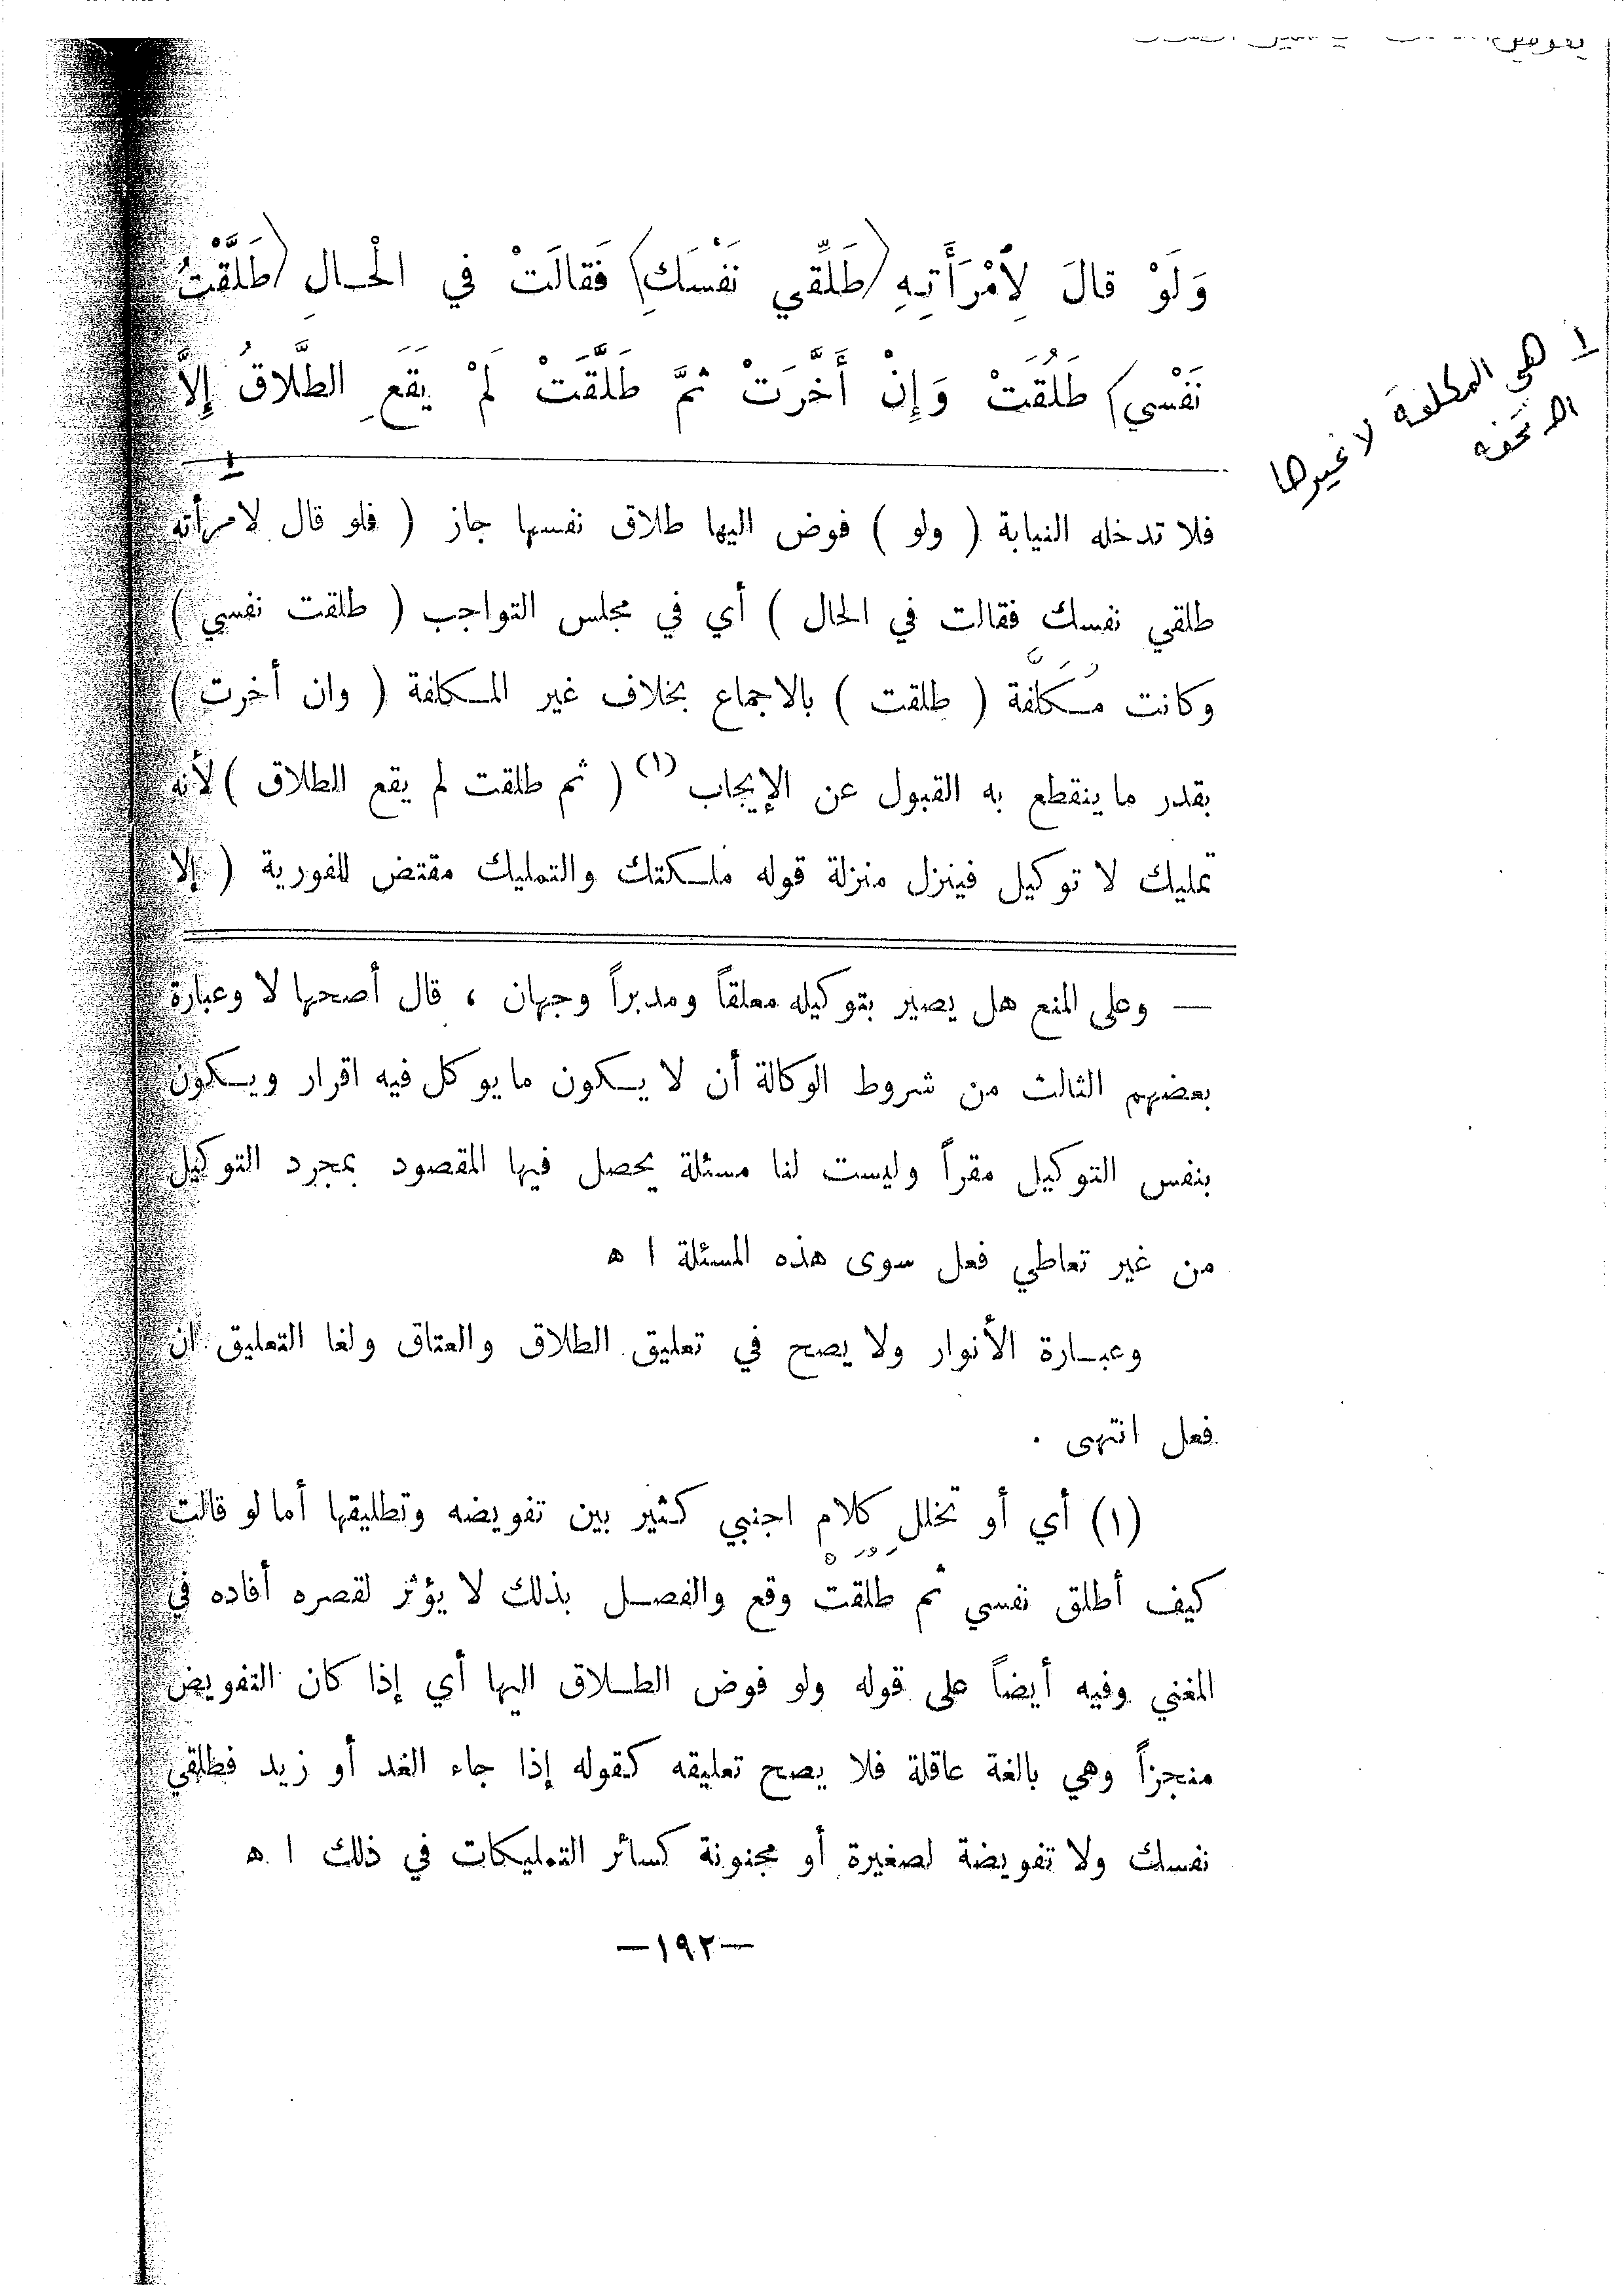 وَلَوْ قالَ لِأمْرَأَتِهِ (طَلِّقي نَفْسَكِ) فَقالَتْ في الْحالِ (طَلَّقْتُ
نَفْسي) طَلُقَتْ وَإِنْ أَخَّرَتْ ثمَّ طَلَّقَتْ لَمْ يَقَعِ الطَّلاقُ إِلاَّ
١ هي المكلفة لا غيرها
اهـ تحفه
فلا تدخله النيابة ( ولو ) فوض اليها طلاق نفسها جاز ( فلو قال لامرأته
طلقي نفسك فقالت في الحال ) أي في مجلس التواجب ( طلقت نفسي )
وكانت مُكَلَّفة ( طلقت ) بالاجماع بخلاف غير المكلفة ( وان أخرت )
بقدر ما ينقطع به القبول عن الإيجاب (١) ( ثم طلقت لم يقع الطلاق ) لأنه
تمليك لا توكيل فينزل منزلة قوله ملكتك والتمليك مقتض للفورية ( إلا
— وعلى المنع هل يصير بتوكيله معلقاً ومدبراً وجهان ، قال أصحها لا وعبارة
بعضهم الثالث من شروط الوكالة أن لا يكون ما يوكل فيه اقرار ويكون
بنفس التوكيل مقراً وليست لنا مسئلة يحصل فيها المقصود بمجرد التوكيل
من غير تعاطي فعل سوى هذه المسئلة ا ه
وعبارة الأنوار ولا يصح في تعليق الطلاق والعتاق ولغا التعليق ان
فعل انتهى .
(١) أي أو تخلل كلام اجنبي كثير بين تفويضه وتطليقها أما لو قالت
كيف أطلق نفسي ثم طلقت وقع والفصل بذلك لا يؤثر لقصره أفاده في
المغني وفيه أيضاً على قوله ولو فوض الطلاق اليها أي إذا كان التفويض
منجزاً وهي بالغة عاقلة فلا يصح تعليقه كقوله إذا جاء الغد أو زيد فطلقي
نفسك ولا تفويضة لصغيرة أو مجنونة كسائر التمليكات في ذلك ا ه
—١٩٢—